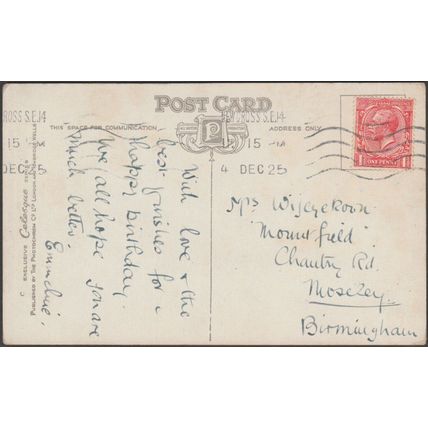 POST CARD
THIS SPACE FOR COMMUNICATION
ADDRESS ONLY
P
CROSS S.E.14
15
DEC 25
NEW CROSS S.E.14
15
4 DEC 25
ONE PENNY
With love & the
best wishes for a
happy birthday.
We all hope you are
much better
Emmeline.
Mrs Wijeyekoon.
"Mountfield"
Chantry Rd.
Moseley.
Birmingham
EXCLUSIVE Celesque SERIES
PUBLISHED BY THE PHOTOCHROM CO. LTD LONDON AND TUNBRIDGE WELLS